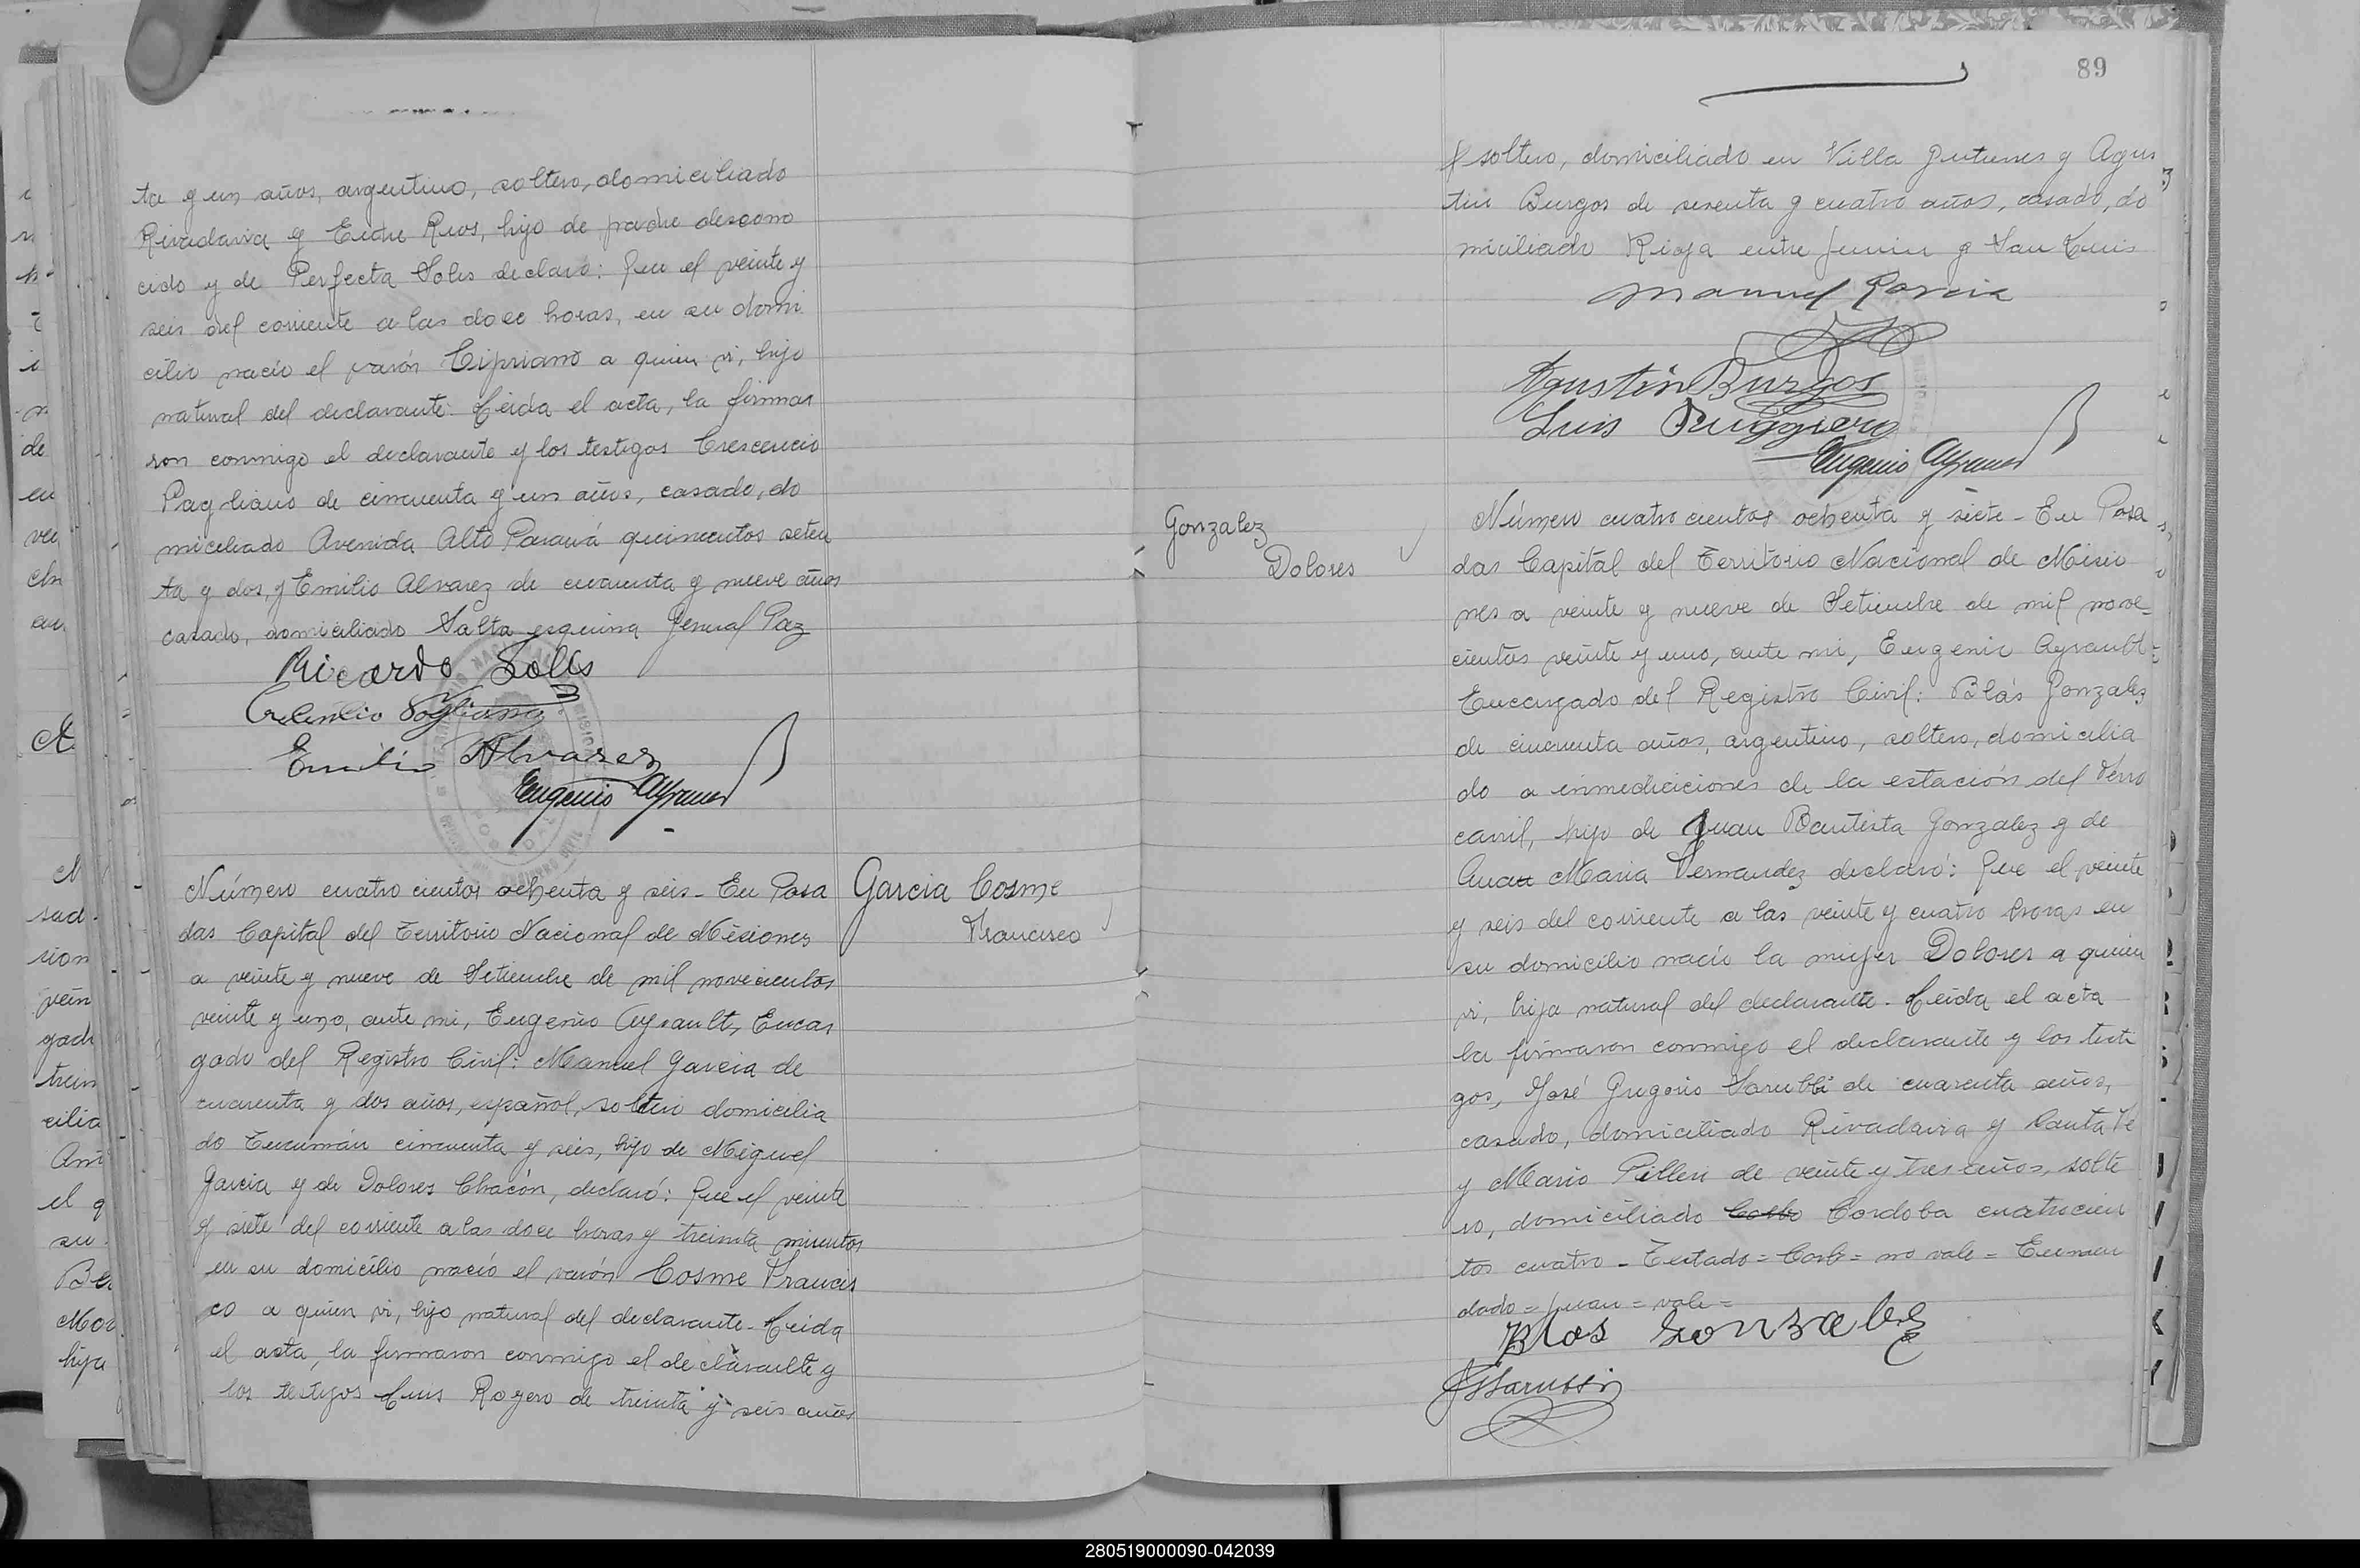 ta y un años, argentino, soltero, domiciliado
Rivadavia y Entre Rios, hijo de padre descono
cido y de Perfecta Solis declaró: Que el veinte y
seis del corriente a las doce horas, en su domi
cilio nació el varón Cipriano a quien vi, hijo
natural del declarante. Leida el acta, la firma
ron conmigo el declarante y los testigos Crescencio
Pagliano de cincuenta y un años, casado, do
miciliado Avenida Alto Paraná quinientos seten
ta y dos, y Emilio Alvarez de cuarenta y nueve años
casado, domiciliado Salta esquina General Paz
Ricardo Solis
Pagliano
Emilio Alvarez
Eugenio Ayrault
Número cuatro cientos ochenta y seis - En Posa
das Capital del Territorio Nacional de Misiones
a veinte y nueve de Setiembre de mil novecientos
veinte y uno, ante mi, Eugenio Ayrault, Encar
gado del Registro Civil: Manuel Garcia de
cuarenta y dos años, español, soltero domicilia
do Tucumán cincuenta y seis, hijo de Miguel
Garcia y de Dolores Chacón, declaró: Que el veinte
y siete del corriente a las doce horas y treinta minutos
en su domicilio nació el varón Cosme Francis
co a quien vi, hijo natural del declarante - Leida
el acta, la firmaron conmigo el declarante y
los testigos Luis Rogero de treinta y seis años
Garcia Cosme
Francisco
89
soltero, domiciliado en Villa y Agus
tin Burgos de sesenta y cuatro años, casado, do
miciliado Rioja entre Junin y San Luis
Manuel Garcia
Agustin Burgos
Luis Ruggiero
Eugenio Ayrault
Gonzalez
Dolores
Número cuatro cientos ochenta y siete - En Posa
das Capital del Territorio Nacional de Misio
nes a veinte y nueve de Setiembre de mil nove-
cientos veinte y uno, ante mi, Eugenio Ayrault
Encargado del Registro Civil: Blás Gonzalez
de cincuenta años, argentino, soltero, domicilia
do a inmediciones de la estación del Ferro
carril, hijo de Juan Bautista Gonzalez y de
Ana Maria Fernandez declaró: Que el veinte
y seis del corriente a las veinte y cuatro horas en
su domicilio nació la mujer Dolores a quien
vi, hija natural del declarante - Leida el acta
la firmaron conmigo el declarante y los testi
gos, José Gregorio Sarubbi de cuarenta años,
casado, domiciliado Rivadavia y Santa Fé
y Mario de veinte y tres años, solte
ro, domiciliado Cordoba cuatrocien
tos cuatro - Testado = = no vale = Enmen
dado = Juan = vale =
Blas Gonzalez
JGSarubbi
280519000090-042039